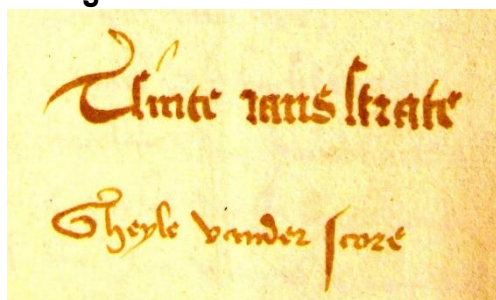 Tsinte ians strate
Gheyle vander score